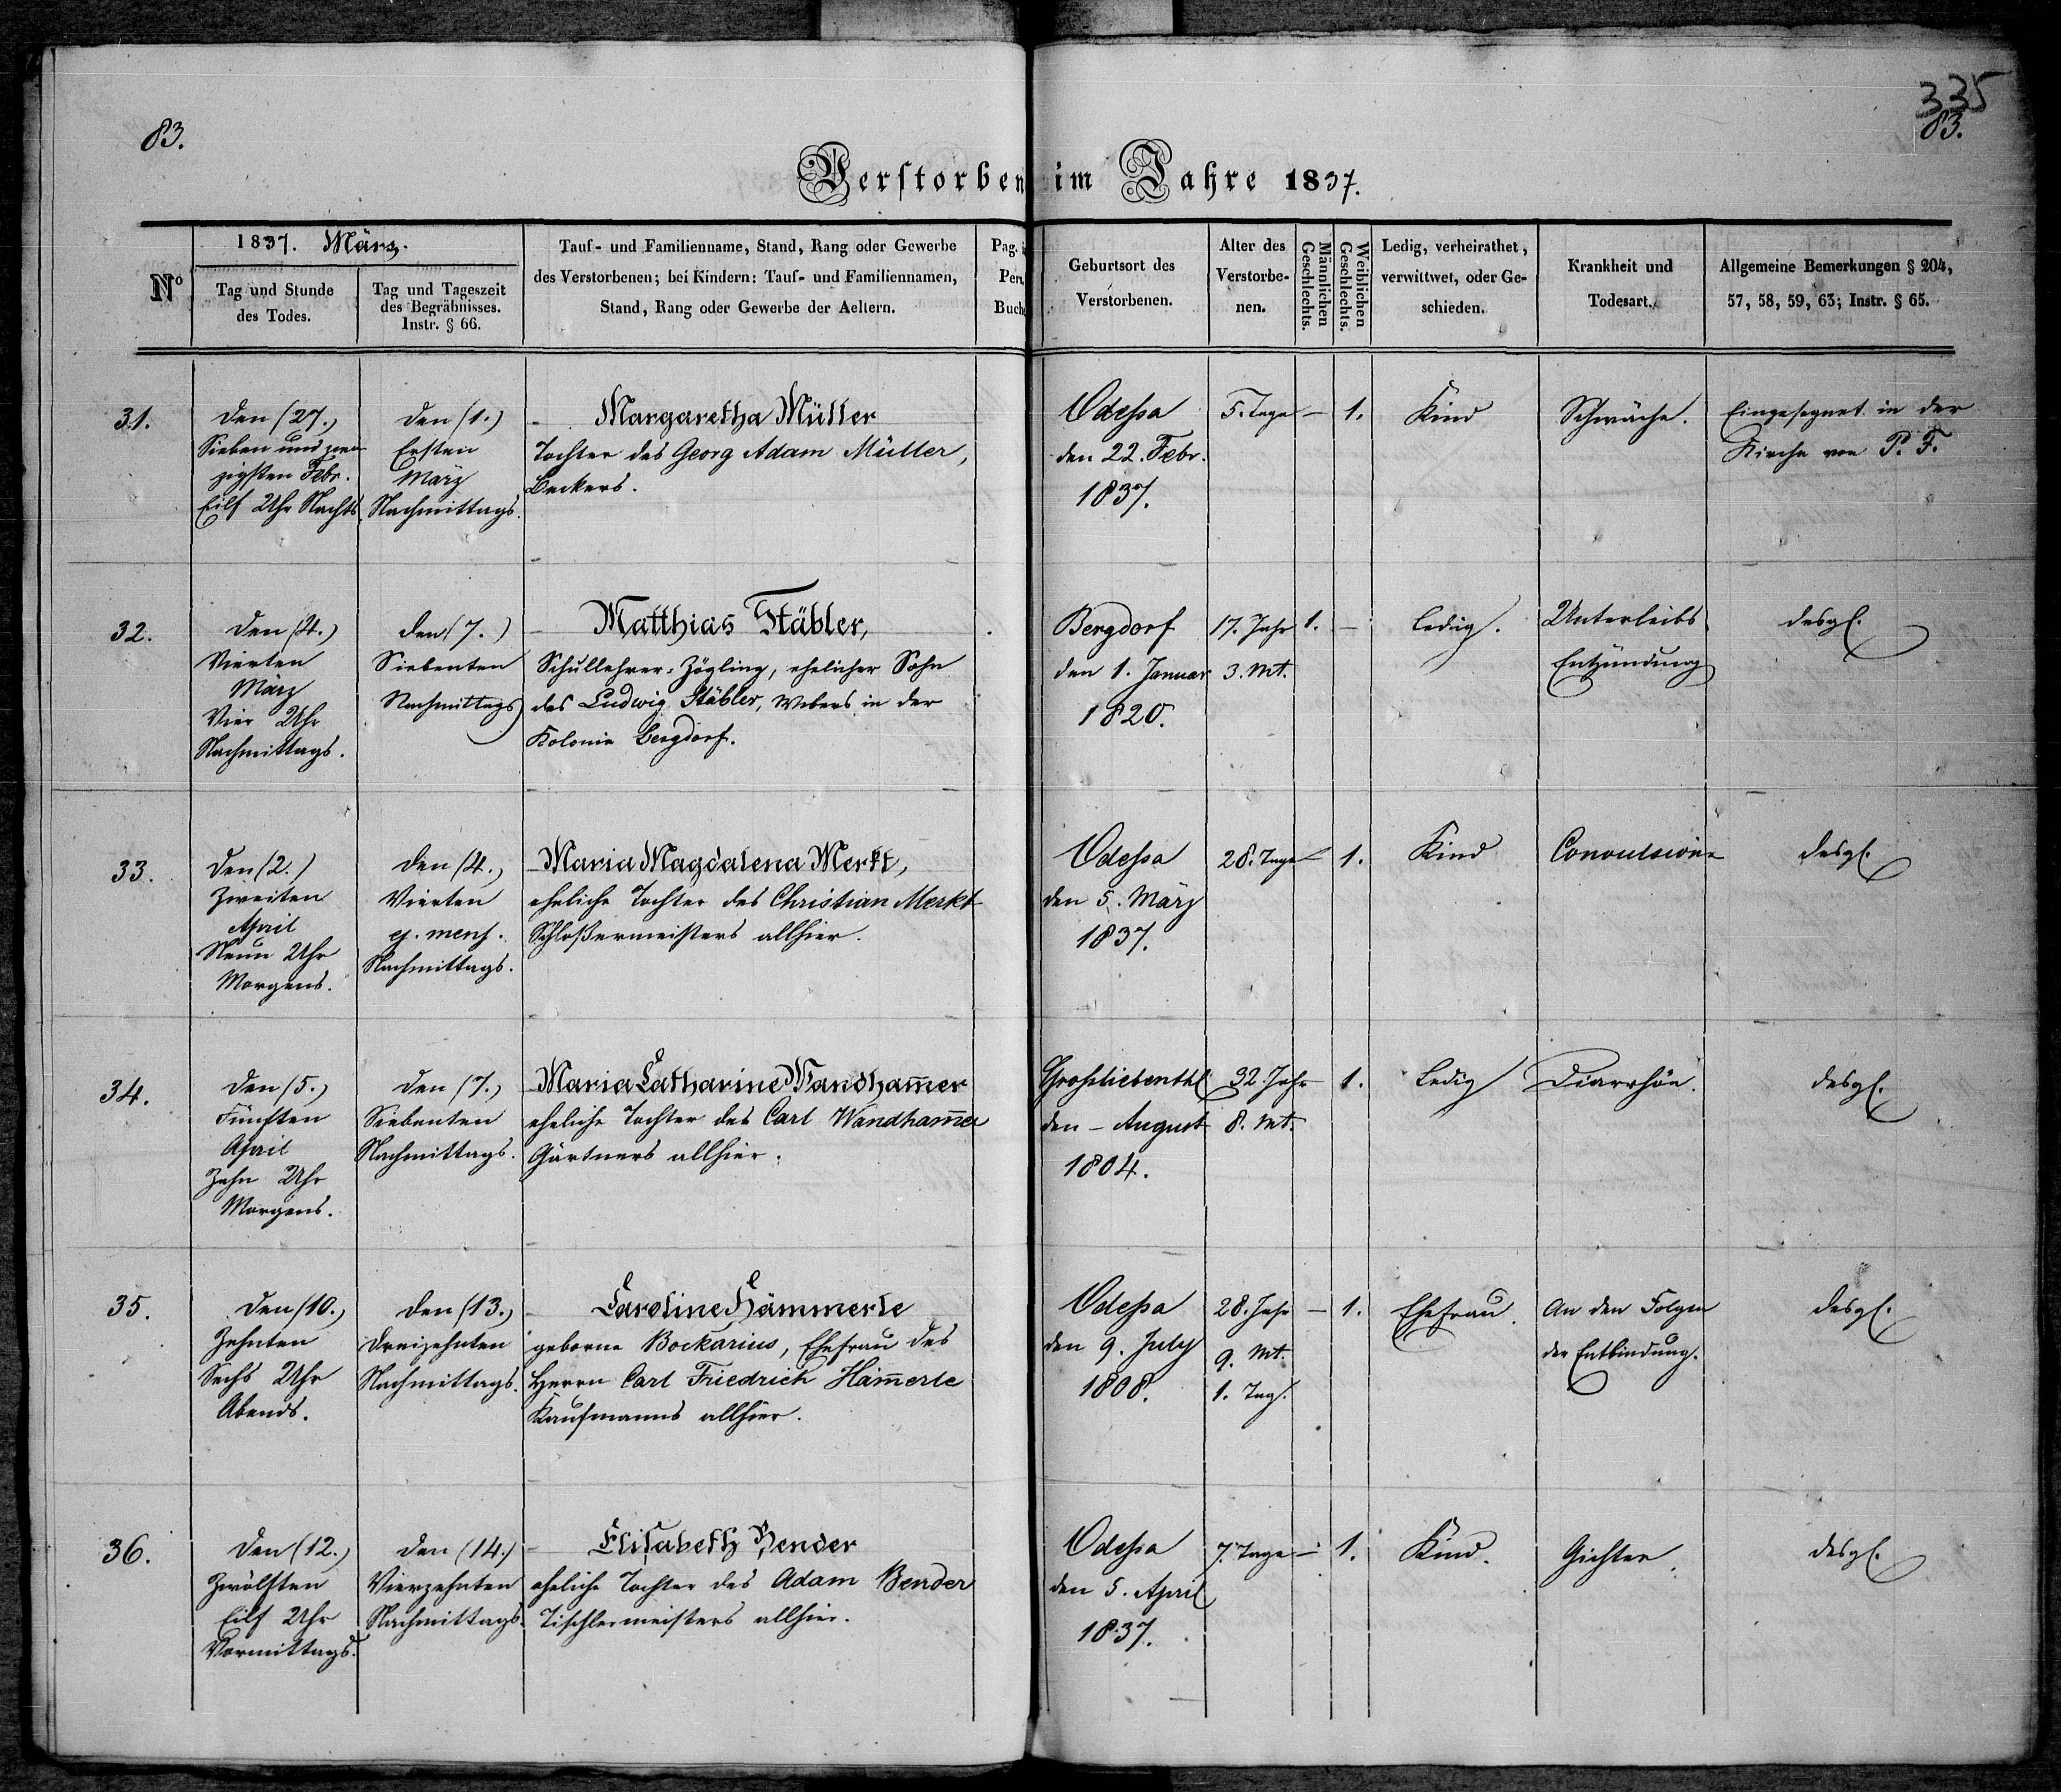 335
83.
83.
Verstorben im Jahre 1837.
1837. März.
No
Tag und Stunde
des Todes.
Tag und Tageszeit
des Begräbnisses.
Instr. § 66.
Tauf- und Familienname, Stand, Rang oder Gewerbe
des Verstorbenen; bei Kindern: Tauf- und Familiennamen,
Stand, Rang oder Gewerbe der Aeltern.
Pag. i
Pers.
Buche
Geburtsort des
Verstorbenen.
Alter des
Verstorbe-
nen.
Männlichen
Geschlechts.
Weiblichen
Geschlechts.
Ledig, verheirathet,
verwittwet, oder Ge-
schieden.
Krankheit und
Todesart.
Allgemeine Bemerkungen § 204,
57, 58, 59, 63; Instr. § 65.
31.
den (27.)
Sieben und zwan
zigsten Febr.
Eilf Uhr Nachts
den (1.)
Ersten
März
Nachmittags.
Margaretha Müller
Tochter des Georg Adam Müller,
Beckers.
Odessa
den 22. Febr.
1837.
5. Tage
–
1.
Kind
Schwäche.
Eingesegnet in der
Kirche von P. F.
32.
den (4.)
Vierten
März
Vier Uhr
Nachmittags.
den (7.)
Siebenten
Nachmittags
Matthias Stäbler,
Schullehrer-Zögling, ehelicher Sohn
des Ludwig Stäbler, Webers in der
Kolonie Bergdorf.
Bergdorf
den 1. Januar
1820.
17. Jahr
3. Mt.
1.
–
ledig.
Unterleibs
Entzündung
desgl.
33.
den (2.)
Zweiten
April
Neun Uhr
Morgens.
den (4.)
Vierten
ej. mens.
Nachmittags.
Maria Magdalena Merkt,
eheliche Tochter des Christian Merkt
Schloßermeisters allhier.
Odessa
den 5. März
1837.
28. Tage
–
1.
Kind
Convulsion
desgl.
34.
den (5.)
Fünften
April
Zehn Uhr
Morgens.
den (7.)
Siebenten
Nachmittags.
Maria Catharine Wandham̅er
eheliche Tochter des Carl Wandham̅er
Gärtners allhier.
Grosliebenthl
den – August
1804.
32. Jahr
8. Mt.
1.
ledig
Diarrhöe.
desgl.
35.
den (10.)
Zehnten
Sechs Uhr
Abends.
den (13.)
Dreizehnten
Nachmittags.
Caroline Hämmerle
geborne Bockarius, Ehefrau des
Herrn Carl Friedrich Häm̅erle
Kaufmanns allhier.
Odessa
den 9. July
1808.
28. Jahr
9. Mt.
1. Tag.
–
1.
Ehefrau.
An den Folgen
der Entbindung.
desgl.
36.
den (12.)
Zwölften
Eilf Uhr
Vormittags.
den (14.)
Vierzehnten
Nachmittags.
Elisabeth Bender
eheliche Tochter des Adam Bender
Tischlermeisters allhier.
Odessa
den 5. April
1837.
7. Tage
–
1.
Kind.
Gichter.
desgl.